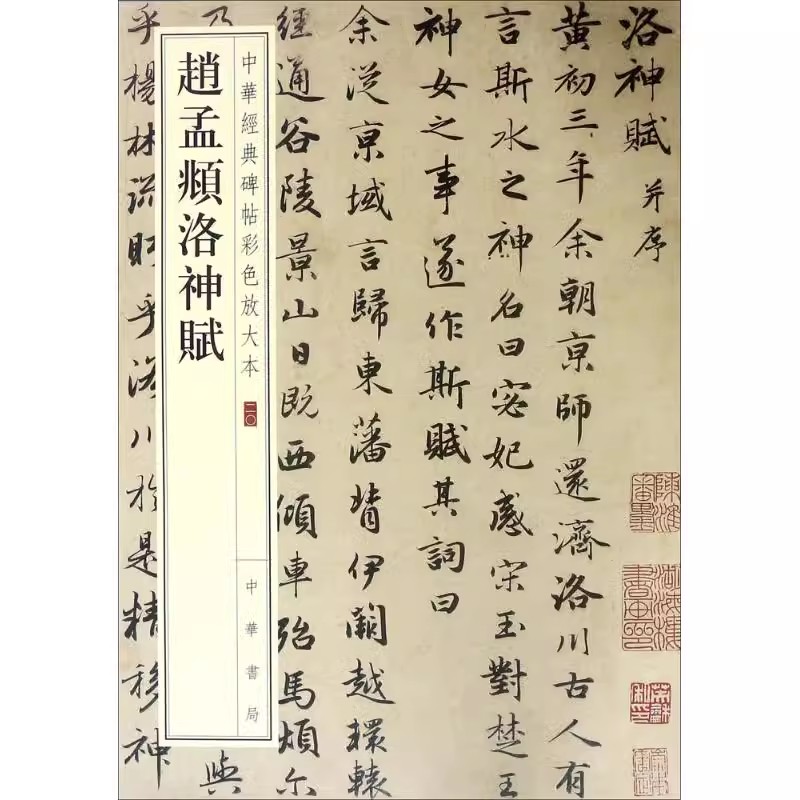 洛神賦 并序
黄初三年余朝京師還濟洛川古人有
言斯水之神名曰宓妃感宋玉對楚王
神女之事遂作斯賦其詞曰
余從京域言歸東藩背伊闕越轘轅
經通谷陵景山日既西傾車殆馬煩尓
乃
與
中華經典碑帖彩色放大本 二〇
中華書局
趙孟頫洛神賦
乎楊林流眄乎洛川於是精移神